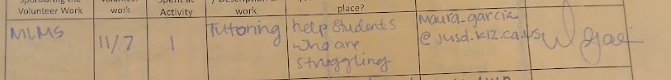 Volunteer Work work Activity work place?
MLMS 11/7 1 Tutoring help students
who are
struggling
maura.garcia
@jusd.k12.ca.us